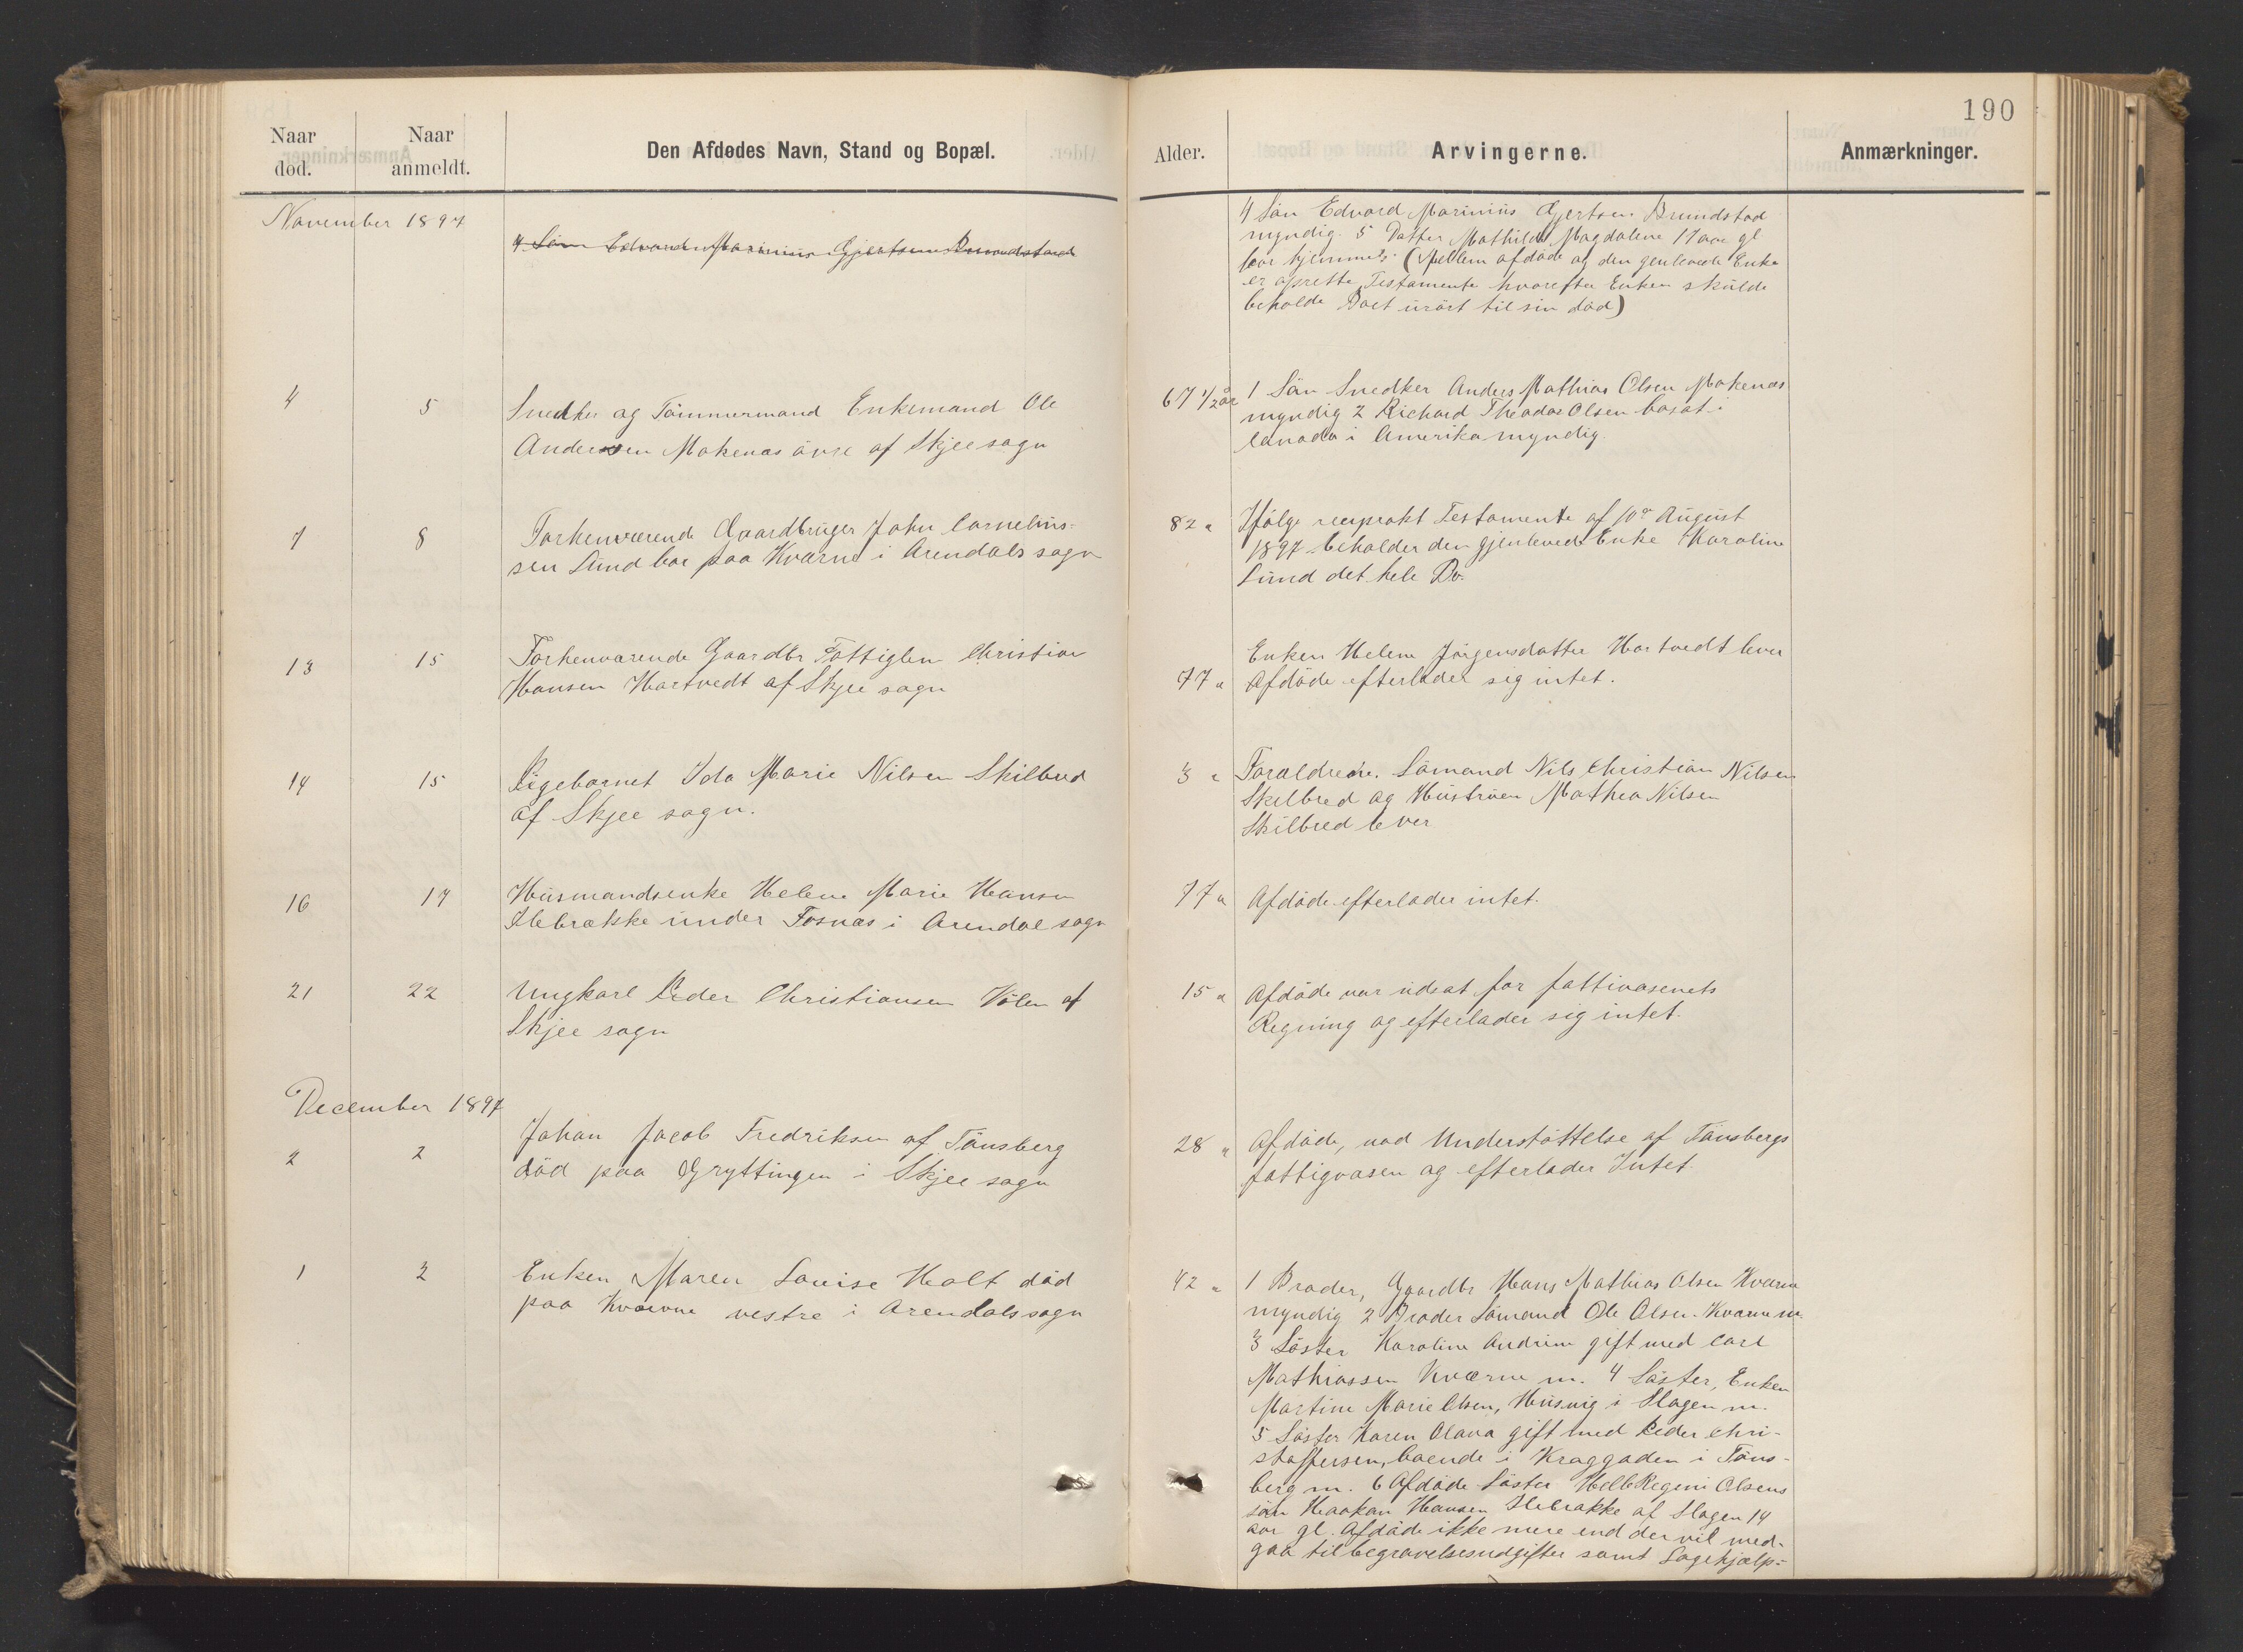 190
Naar død.
Naar anmeldt.
Den Afdødes Navn, Stand og Bopæl.
Alder.
Arvingerne.
Anmærkninger.
November 1897
4 Søn Edvard Marinius Gjertsen Brundstad
4 Søn Edvard Marinius Gjertsen Brundstad
myndig. 5 Datter Mathilde Magdalene 17 aar gl
hjemme. (Mellem afdøde og den genlevede Enke
er oprette Testamente hvorefter Enken skulde
beholde Boet urørt til sin død)
4
5
Snedker og Tømmermand Enkemand Ole
Andersen Mokenæs øvre af Skjee sogn
67 1/2 år
1 Søn Snedker Anders Mathias Olsen Mokenæs
myndig 2 Richard Theodor Olsen bosat i
Canada i Amerika myndig.
7
8
Forhenværende Gaardbruger John Cornelius-
sen Lund boe paa Kværne i Arendals sogn
82 "
Ifølge reciprokt Testamente af 10de August
1897 beholder den gjenlevede Enke Karoline
Lund det hele Bo.
13
15
Forhenværende Gaardbr Fattiglem Christian
Hansen Hartvedt af Skjee sogn
77 "
Enken Helene Jørgensdatter Hartvedt lever
Afdøde efterlader sig intet.
14
15
Pigebarnet Ida Marie Nilsen Skilbred
af Skjee sogn.
3 "
Forældrene. Sømand Nils Christian Nilsen
Skilbred og Hustruen Mathea Nilsen
Skilbred lever
16
17
Husmandsenke Helene Marie Hansen
Ilebrække under Fosnæs i Arendal sogn
77 "
Afdøde efterlader intet.
21
22
Ungkarl Peder Christiansen Vølen af
Skjee sogn
15 "
Afdøde var udsat for fattivæsenets
Regning og efterlader sig intet.
December 1897
2
2
Johan Jacob Fredriksen af Tønsberg
død paa Gryttingen i Skjee sogn
28 "
Afdøde, nød Understøttelse af Tønsbergs
fattigvæsen og efterlader Intet.
1
2
Enken Maren Louise Holt død
paa Kværne vestre i Arendals sogn
42 "
1 Broder, Gaardbr Hans Mathias Olsen Kværne
myndig 2 Broder Sømand Ole Olsen Kværne m.
3 Søster Karoline Andrine gift med Carl
Mathiassen Kværne m. 4 Søster, Enken
Martine Marie Olsen, Husvig i Slagen m.
5 Søster Karen Olava gift med Peder Chri-
stoffersen, boende i Kraggaden i Tøns-
berg m. 6 Afdøde Søster Regine Olsens
søn Haakon Hansen Ilebrække af Slagen 14
aar gl. Afdøde ikke mere end der vil med-
gaa til begravelsesudgifter samt Lægehjælp-